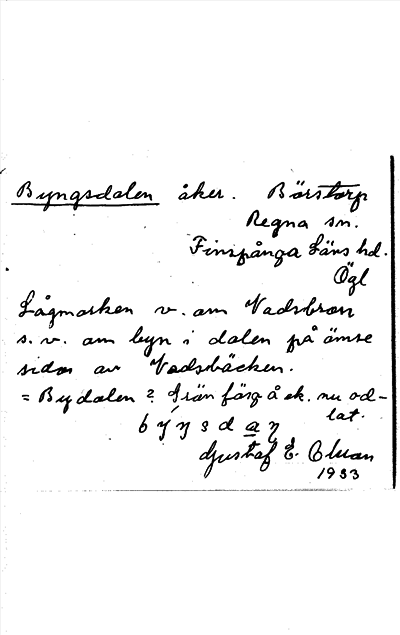 Byngsdalen åker. Börstorp
Regna sn.
Finspånga Läns hd.
Ögl
Lågmarken v. om Vadsbron
s. v. om byn i dalen på ömse
sidor av Vadsbäcken.
= Bydalen? från färg å ek. nu od-
lat.
býŋsdaŋ
Gustaf E.
1933